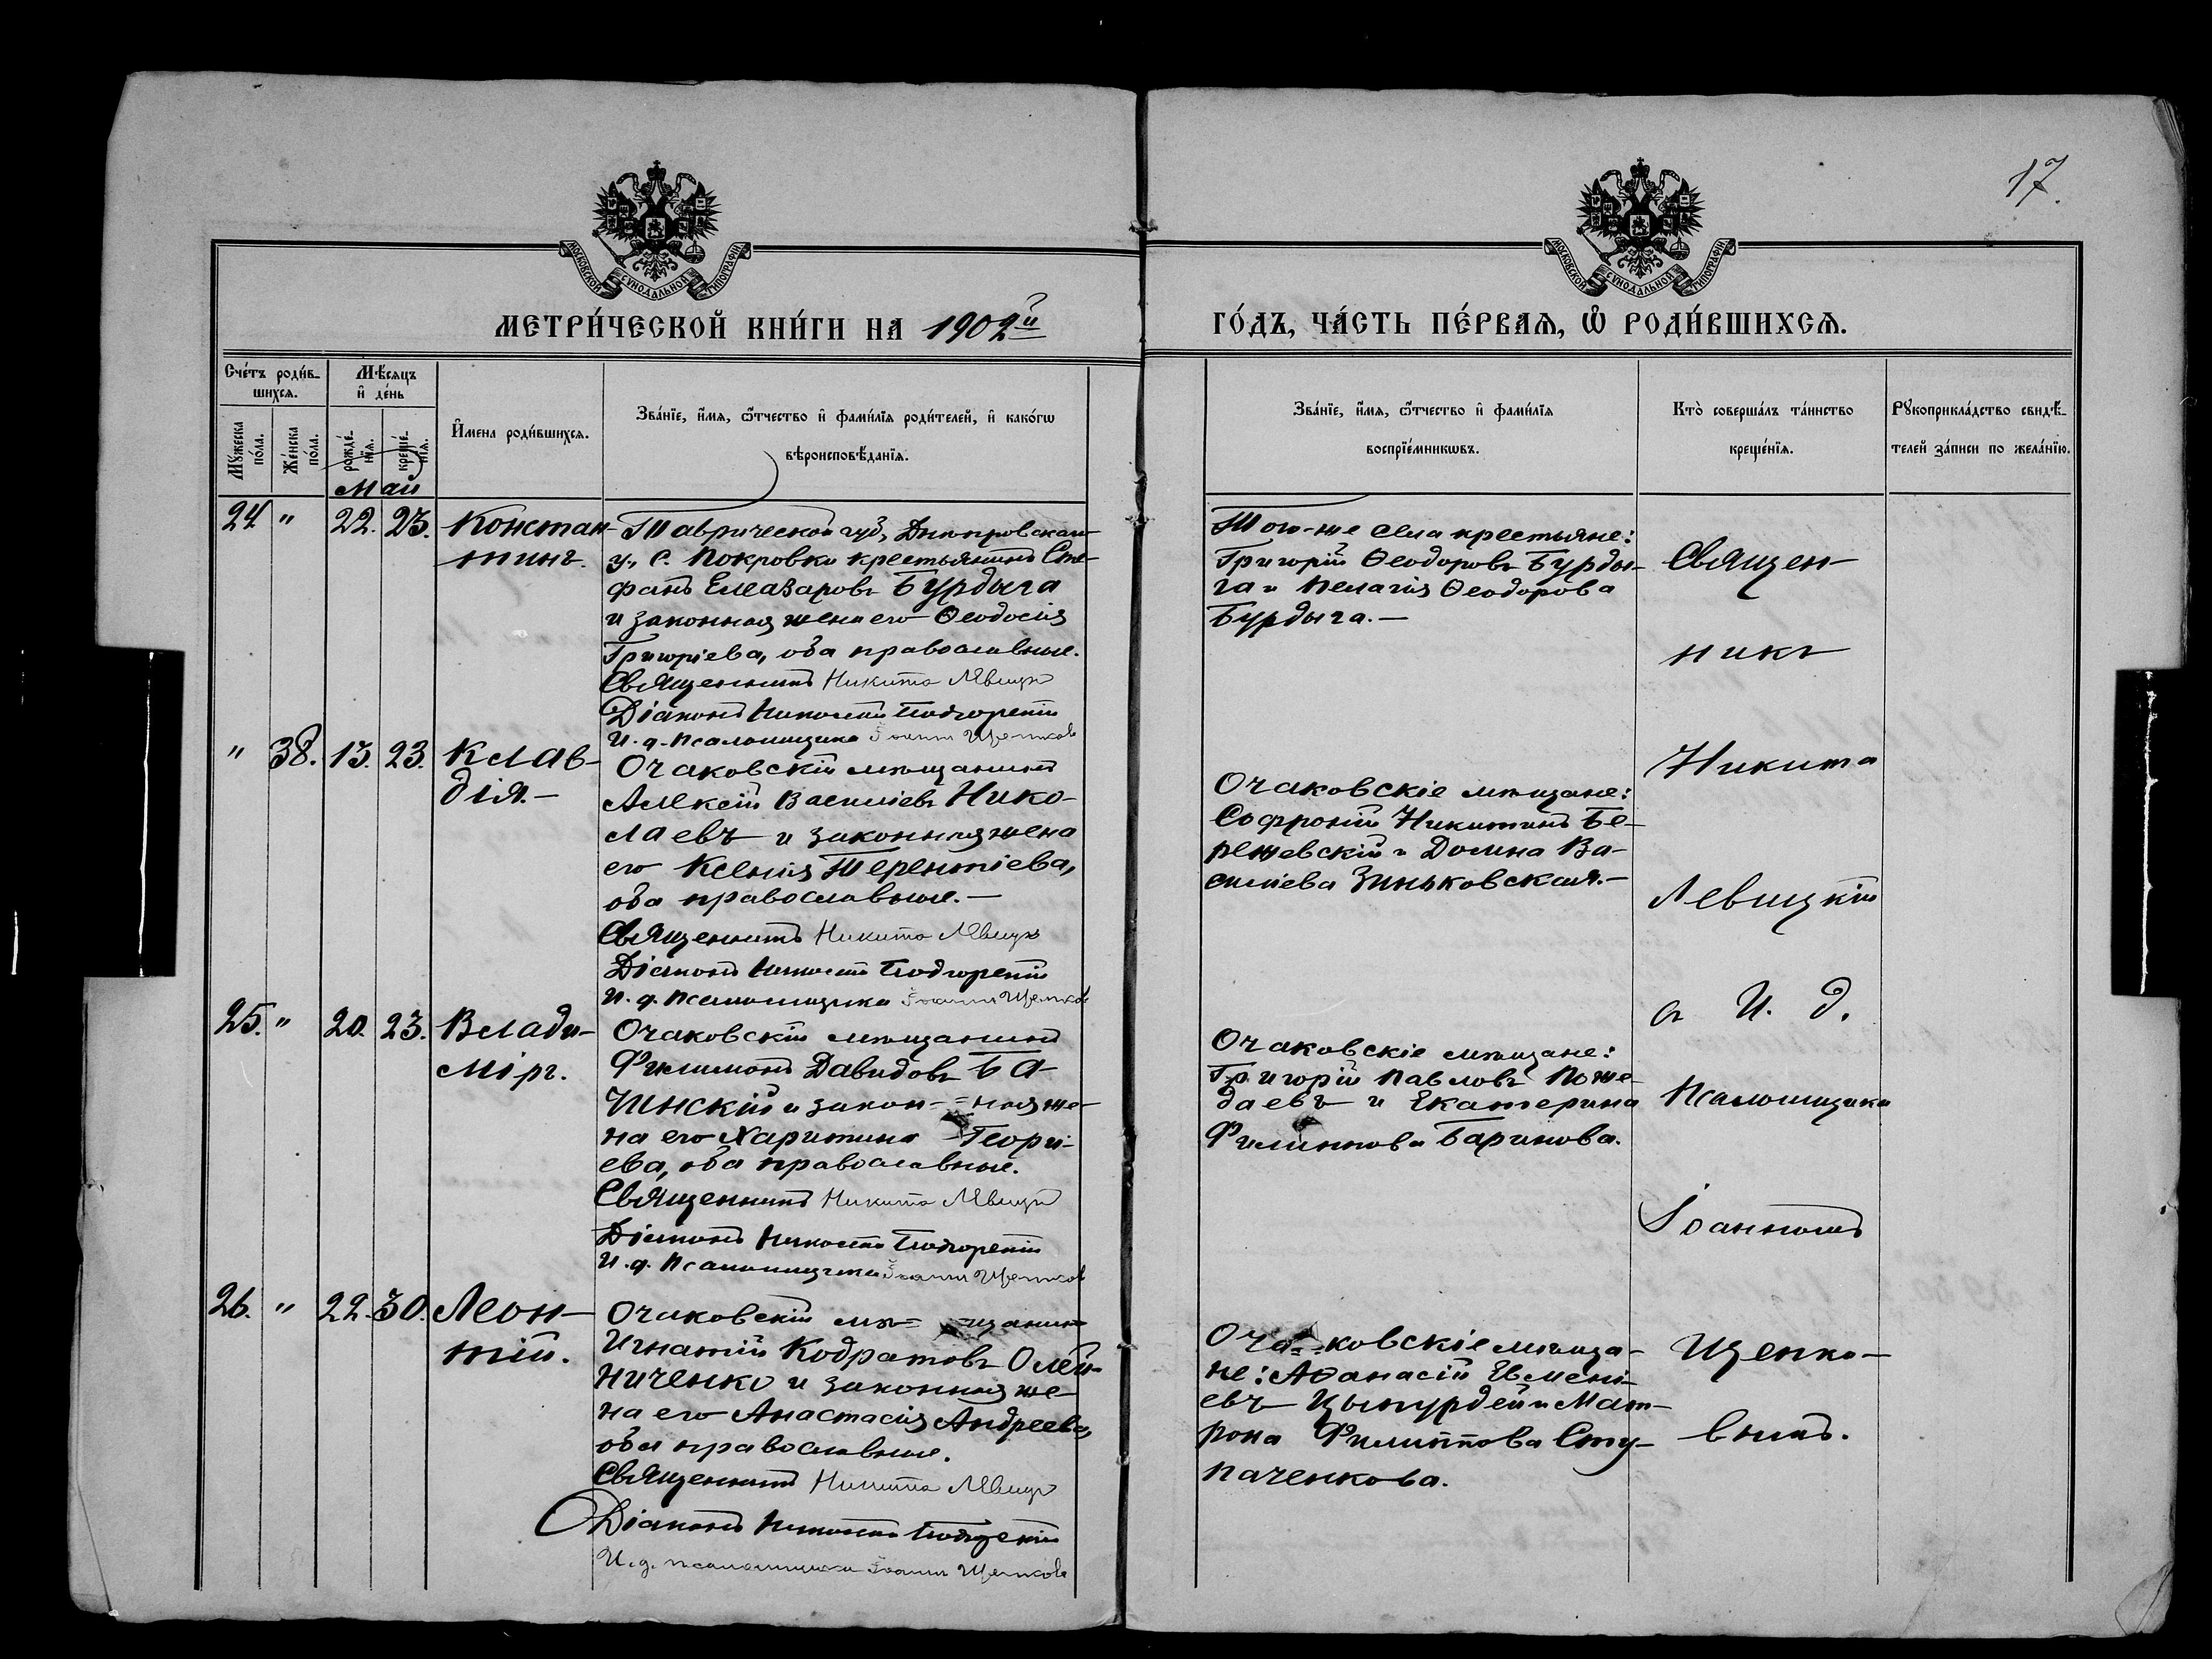 17.
МОСКОВСКОЙ СѴНОДАЛЬНОЙ ТИПОГРАФІИ
МОСКОВСКОЙ СѴНОДАЛЬНОЙ ТИПОГРАФІИ
МЕТРИ́ЧЕСКОЙ КНИ́ГИ НА 1902й
ГО́ДЪ, ЧА́СТЬ ПЕ́РВАѦ, Ѽ РОДИ́ВШИХСѦ.
Сче́тъ роди́в-
шихсѧ.
Мꙋжеска по́ла.
Же́нска по́ла.
Мѣ́сѧцъ
и҆ де́нь
рожде́-нїѧ.
креще́-нїѧ.
И҆мена роди́вшихсѧ.
Зва́нїе, и҆́мѧ, ѻ҆́тчество и҆ фами́лїѧ роди́телей, и҆ како́гѡ
вѣроисповѣ́данїѧ.
Зва́нїе, и҆́мѧ, ѻ҆́тчество и҆ фами́лїѧ
воспрїе́мникѡвъ.
Кто̀ соверша́лъ та́инство
креще́нїѧ.
Рꙋкоприкла́дство свидѣ́-
телей за́писи по жела́нїю.
Май
24 " 22. 23. Констан-
тинъ.
Таврической губ, Днѣпровскаго
у., с. Покровки крестьянинъ Сте-
фанъ Елеазаровъ Бурдыга
и законная жена его Ѳеодосія
Григоріева, оба православные.
Священникъ Никита Левицк
Діаконъ Николай Подгорскій
И. д. псаломщика Іоаннъ Щепков
Того-же села крестьяне:
Григорій Ѳеодоровъ Бурды-
га и Пелагія Ѳеодорова
Бурдыга.—
" 38. 13. 23. Клав-
дія.—
Очаковскій мѣщанинъ
Алексій Василіевъ Нико-
лаевъ и законная жена
его Ксенія Терентіева,
оба православные.—
Священникъ Никита Левицк
Діаконъ Николай Подгорскій
И. д. псаломщика Іоаннъ Щепков
Очаковскіе мѣщане:
Софроній Никитинъ Бе-
режевскій и Домна Ва-
силіева Зиньковская.—
25. " 20. 23. Влади-
міръ.
Очаковскій мѣщанинъ
Филимонъ Давидовъ Ба-
чинскій и закон- =ная же-
на его Харитина Георгі-
ева, оба православные.
Священникъ Никита Левицк
Діаконъ Николай Подгорскій
И. д. псаломщика Іоаннъ Щепков
Очаковскіе мѣщане:
Григорій Павловъ Поже-
даевъ и Екатерина
Филиппова Баринова.
26. " 22. 30. Леон-
тій.
Очаковскій мѣ= =щанинъ
Игнатій Кодратовъ Олей-
ниченко и законная же-
на его Анастасія Андреева,
оба православные.
Священникъ Никита Левицк
Діаконъ Николай Подгорскій
И. д. псаломщика Іоаннъ Щепков
Оча= =ковскіе мѣща-
не: Аѳанасій Евмені-
евъ Цыпурдей и Мат-
рона Филиппова Сту-
паченкова.
Священ-
никъ
Никита
Левицкій
съ И. д.
Псаломщика
Іоанномъ
Щепко-
вымъ.